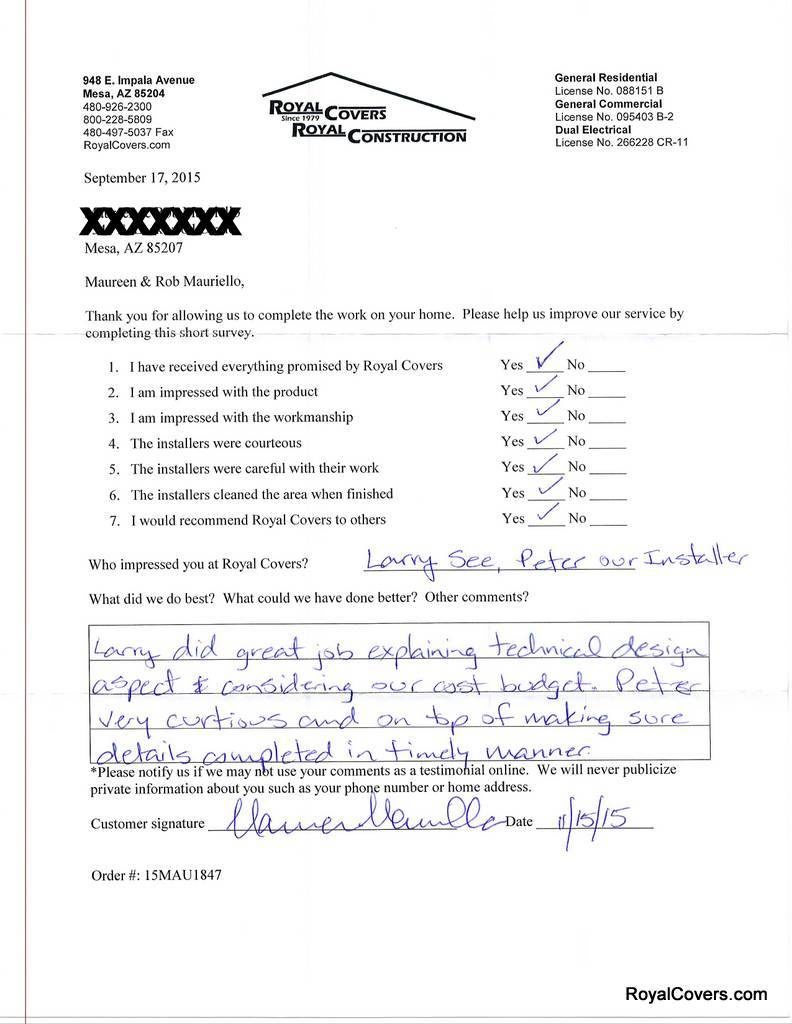 948 E. Impala Avenue
Mesa, AZ 85204
480-926-2300
800-228-5809
480-497-5037 Fax
RoyalCovers.com
ROYAL COVERS
Since 1979
ROYAL CONSTRUCTION
General Residential
License No. 088151 B
General Commercial
License No. 095403 B-2
Dual Electrical
License No. 266228 CR-11
September 17, 2015
XXXXXXX
Mesa, AZ 85207
Maureen & Rob Mauriello,
Thank you for allowing us to complete the work on your home. Please help us improve our service by
completing this short survey.
1. I have received everything promised by Royal Covers Yes ✓ No
2. I am impressed with the product Yes ✓ No
3. I am impressed with the workmanship Yes ✓ No
4. The installers were courteous Yes ✓ No
5. The installers were careful with their work Yes ✓ No
6. The installers cleaned the area when finished Yes ✓ No
7. I would recommend Royal Covers to others Yes ✓ No
Who impressed you at Royal Covers? Larry See, Peter our Installer
What did we do best? What could we have done better? Other comments?
Larry did great job explaining technical design
aspect & considering our cost budget. Peter
very curtious and on top of making sure
details completed in timely manner.
*Please notify us if we may not use your comments as a testimonial online. We will never publicize
private information about you such as your phone number or home address.
Customer signature Date 11/15/15
Order #: 15MAU1847
RoyalCovers.com